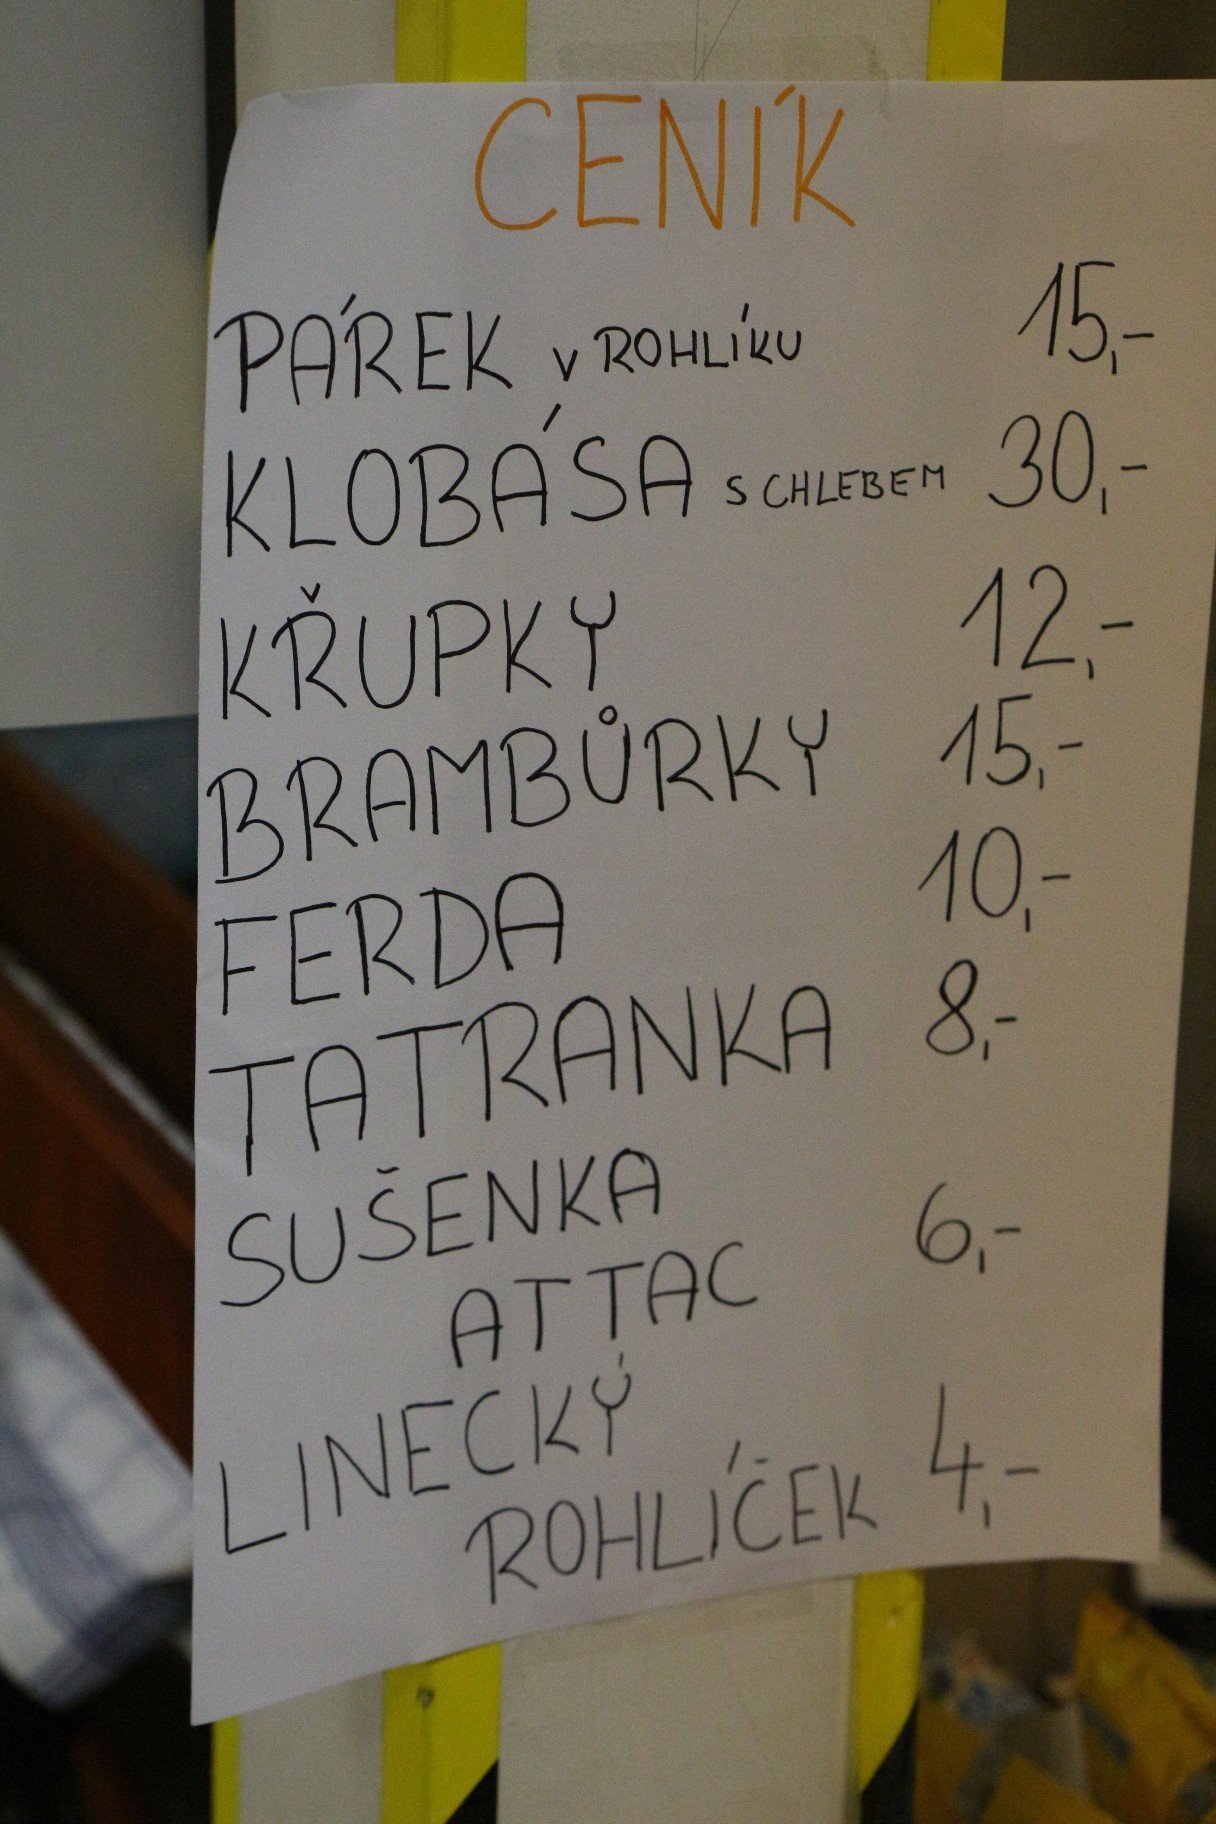 CENÍK
PÁREK V ROHLÍKU 15,-
KLOBÁSA S CHLEBEM 30,-
KŘUPKY 12,-
BRAMBŮRKY 15,-
FERDA 10,-
TATRANKA 8,-
SUŠENKA 6,-
ATTAC
LINECKÝ 4,-
ROHLÍČEK